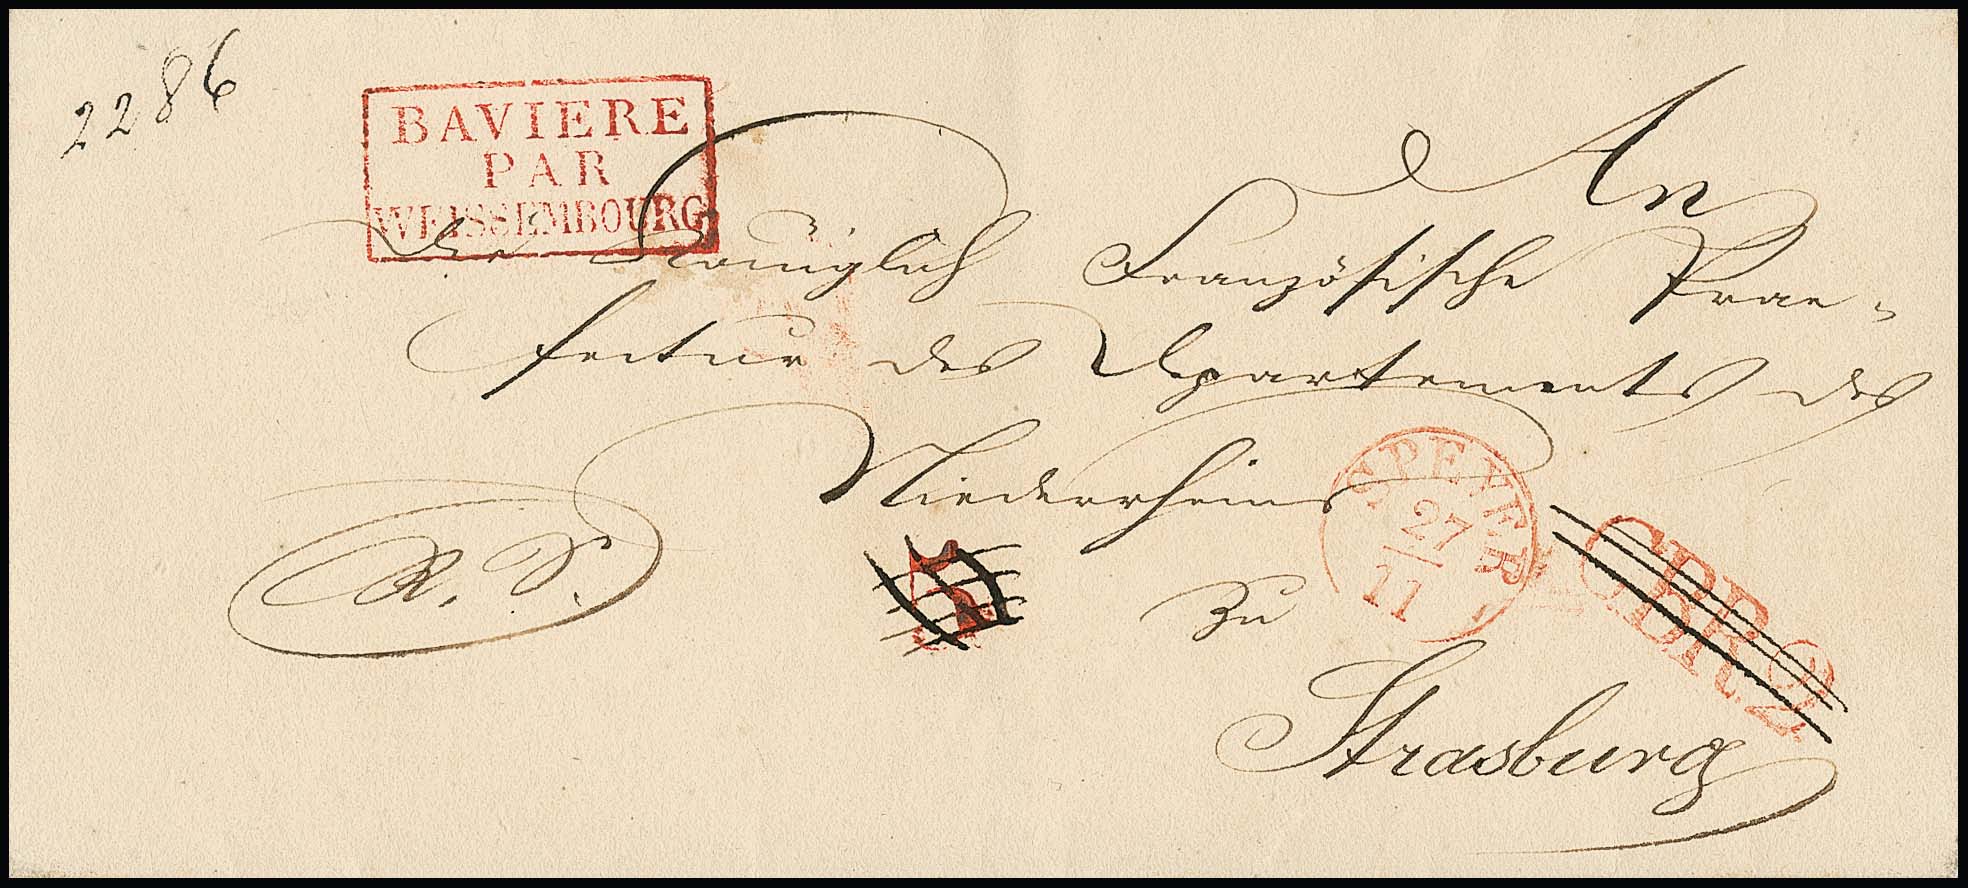 2286
BAVIERE
PAR
WEISSEMBOURG
An
die Königlich Französische Prae-
fectur des Departements des
Niederrheins
SPEYER
27
11
R. S.
5
zu
C.B.R. 2
Strasburg